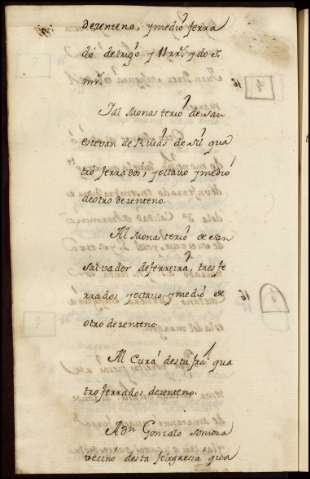 de zenteno, y medio ferra
do de trigo y 11 rrs y dos
mrs
Al Monasterio de san
estevan de Rivas de Sil qua
tro ferrados, y octavo y medio
de otro de zenteno.
Al Monasterio de san
Salvador de ferreira, tres fe
rrados, y octavo y medio de
otro de zenteno.
Al Cura desta fra qua
tro ferrados de zenteno.
A Dn Gonzalo
vecino desta feligresia